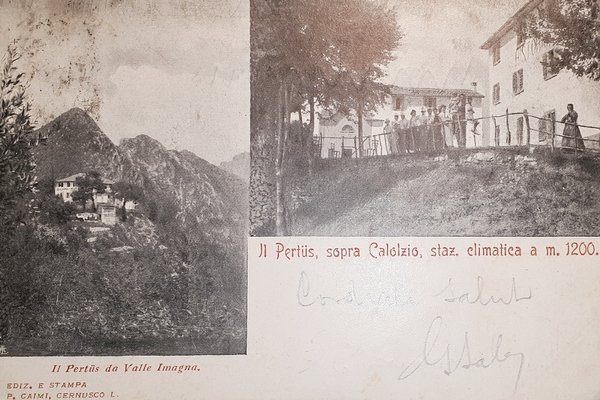 Il Pertüs, sopra Calolzio, staz. climatica a m. 1200.
Cordiali saluti
Il Pertüs da Valle Imagna.
EDIZ. E STAMPA
P. CAIMI, CERNUSCO L.